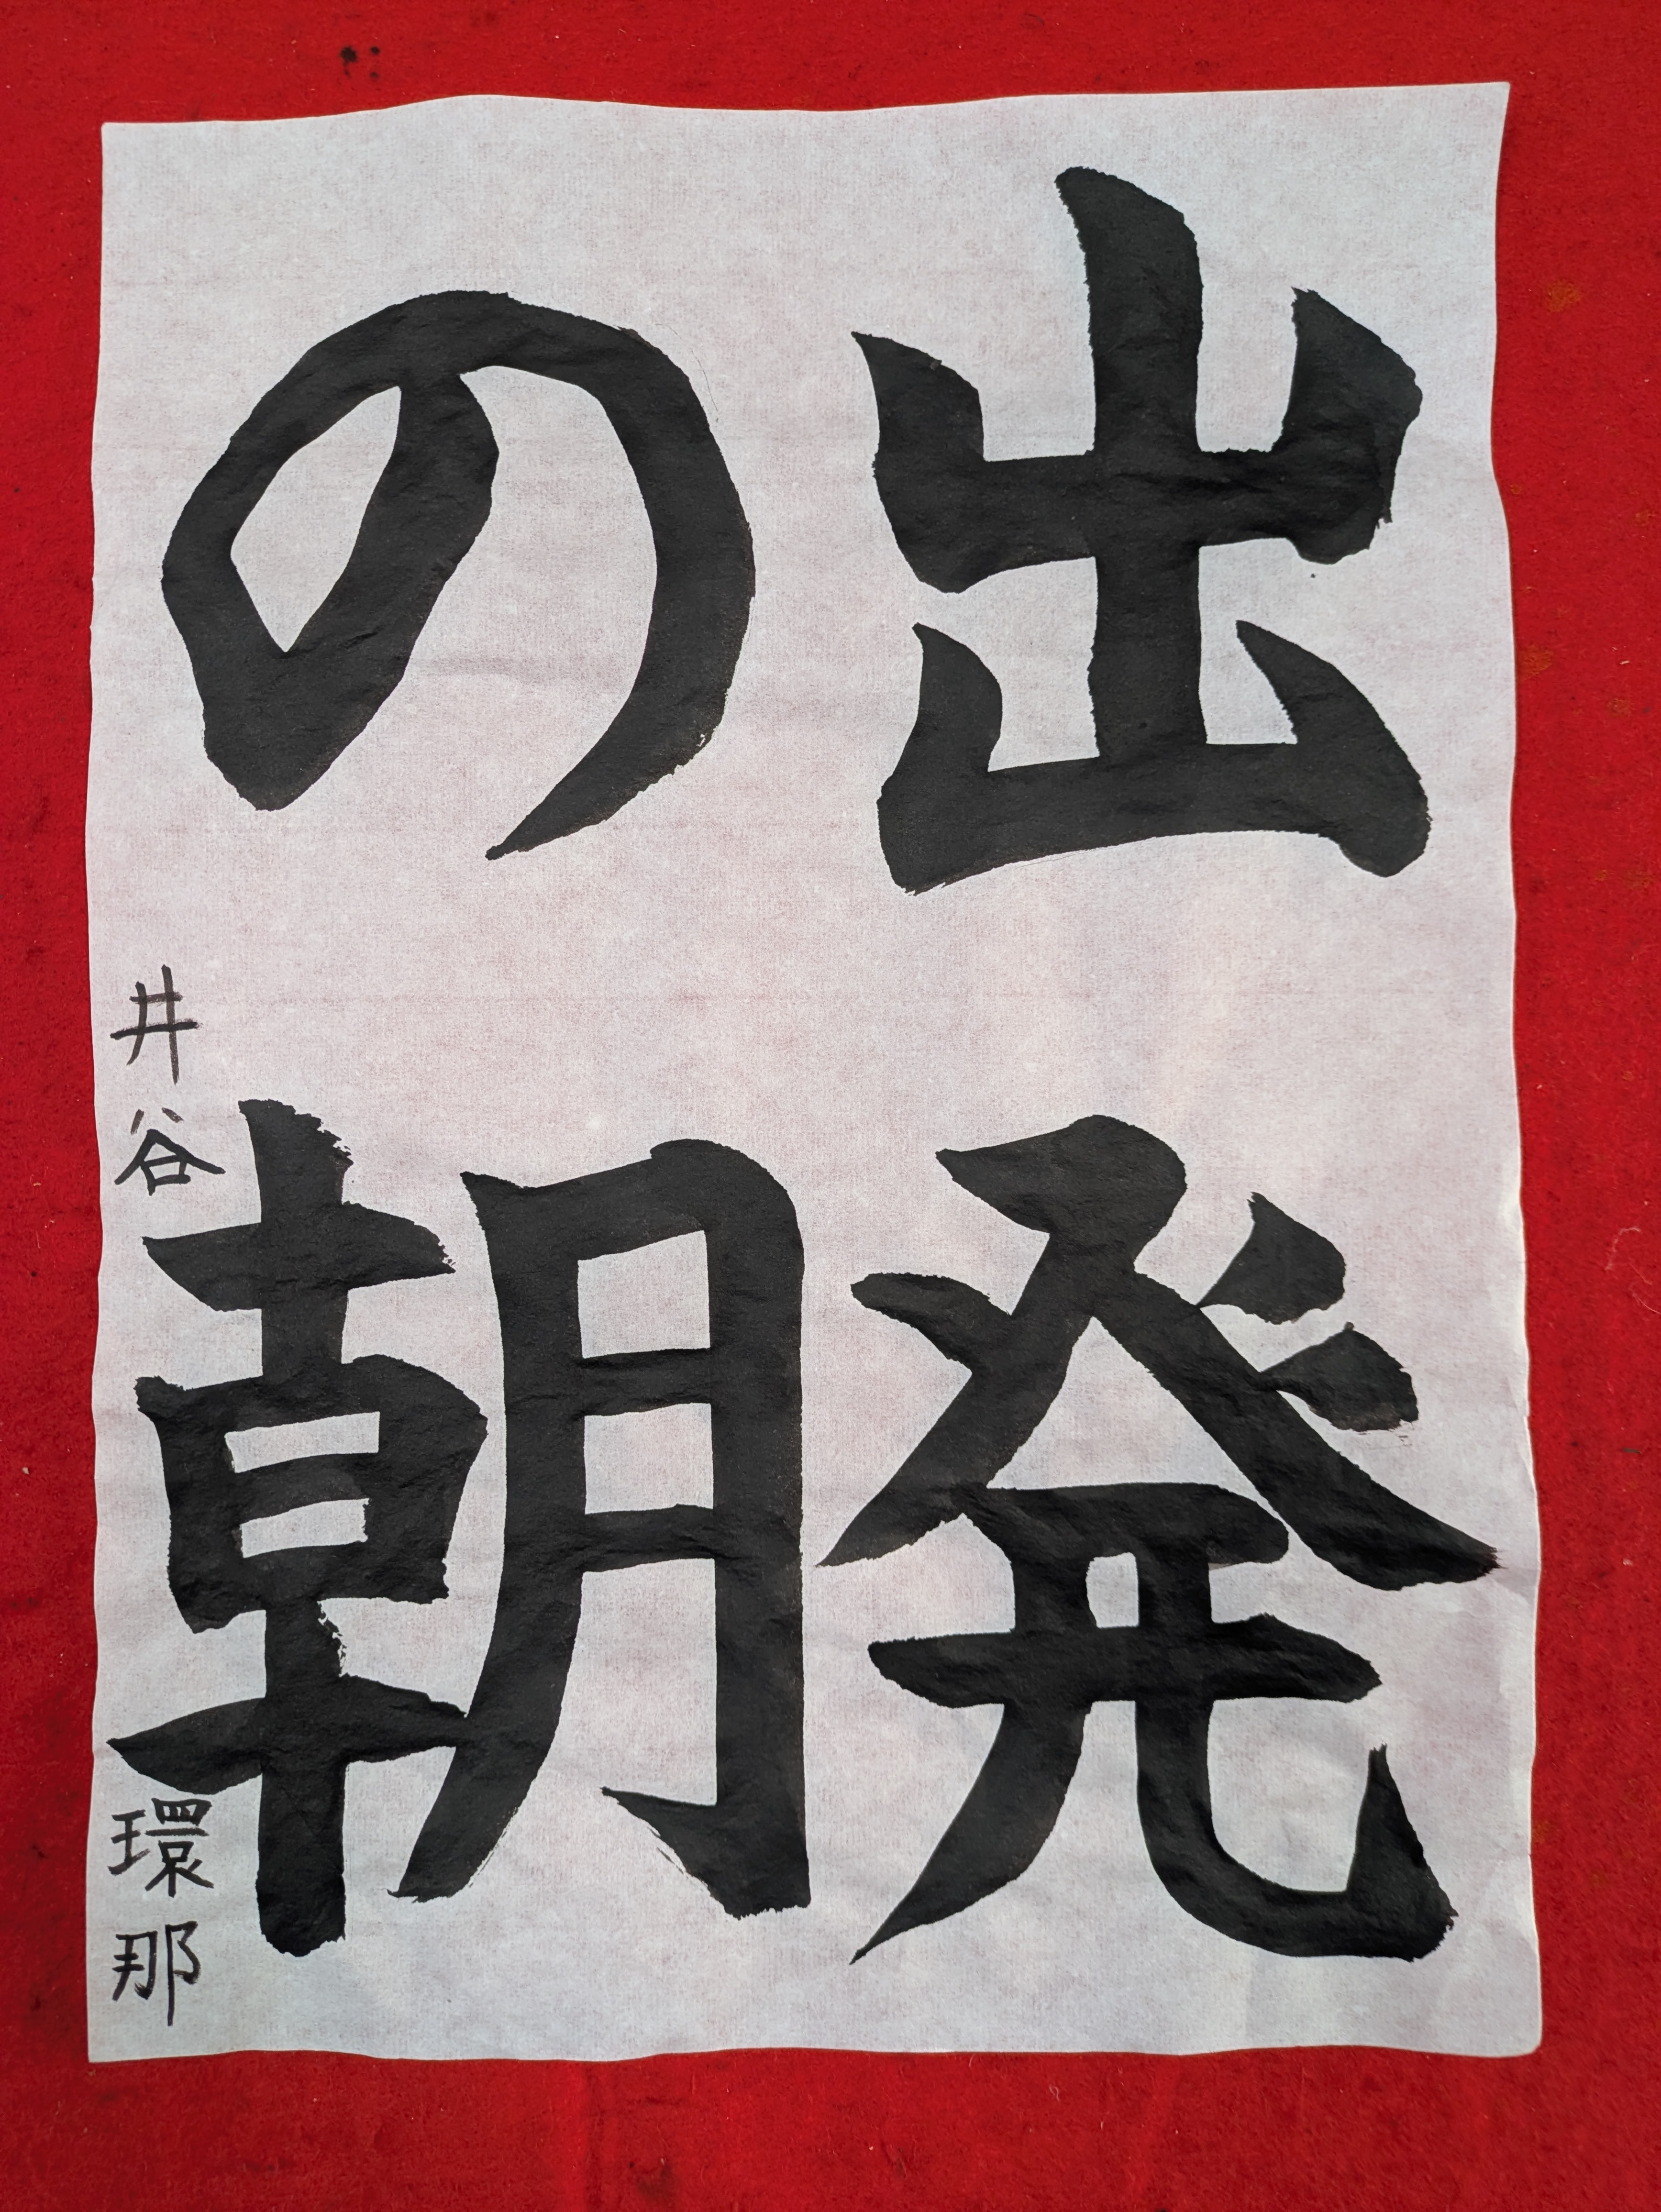 出発
の朝
井谷環那